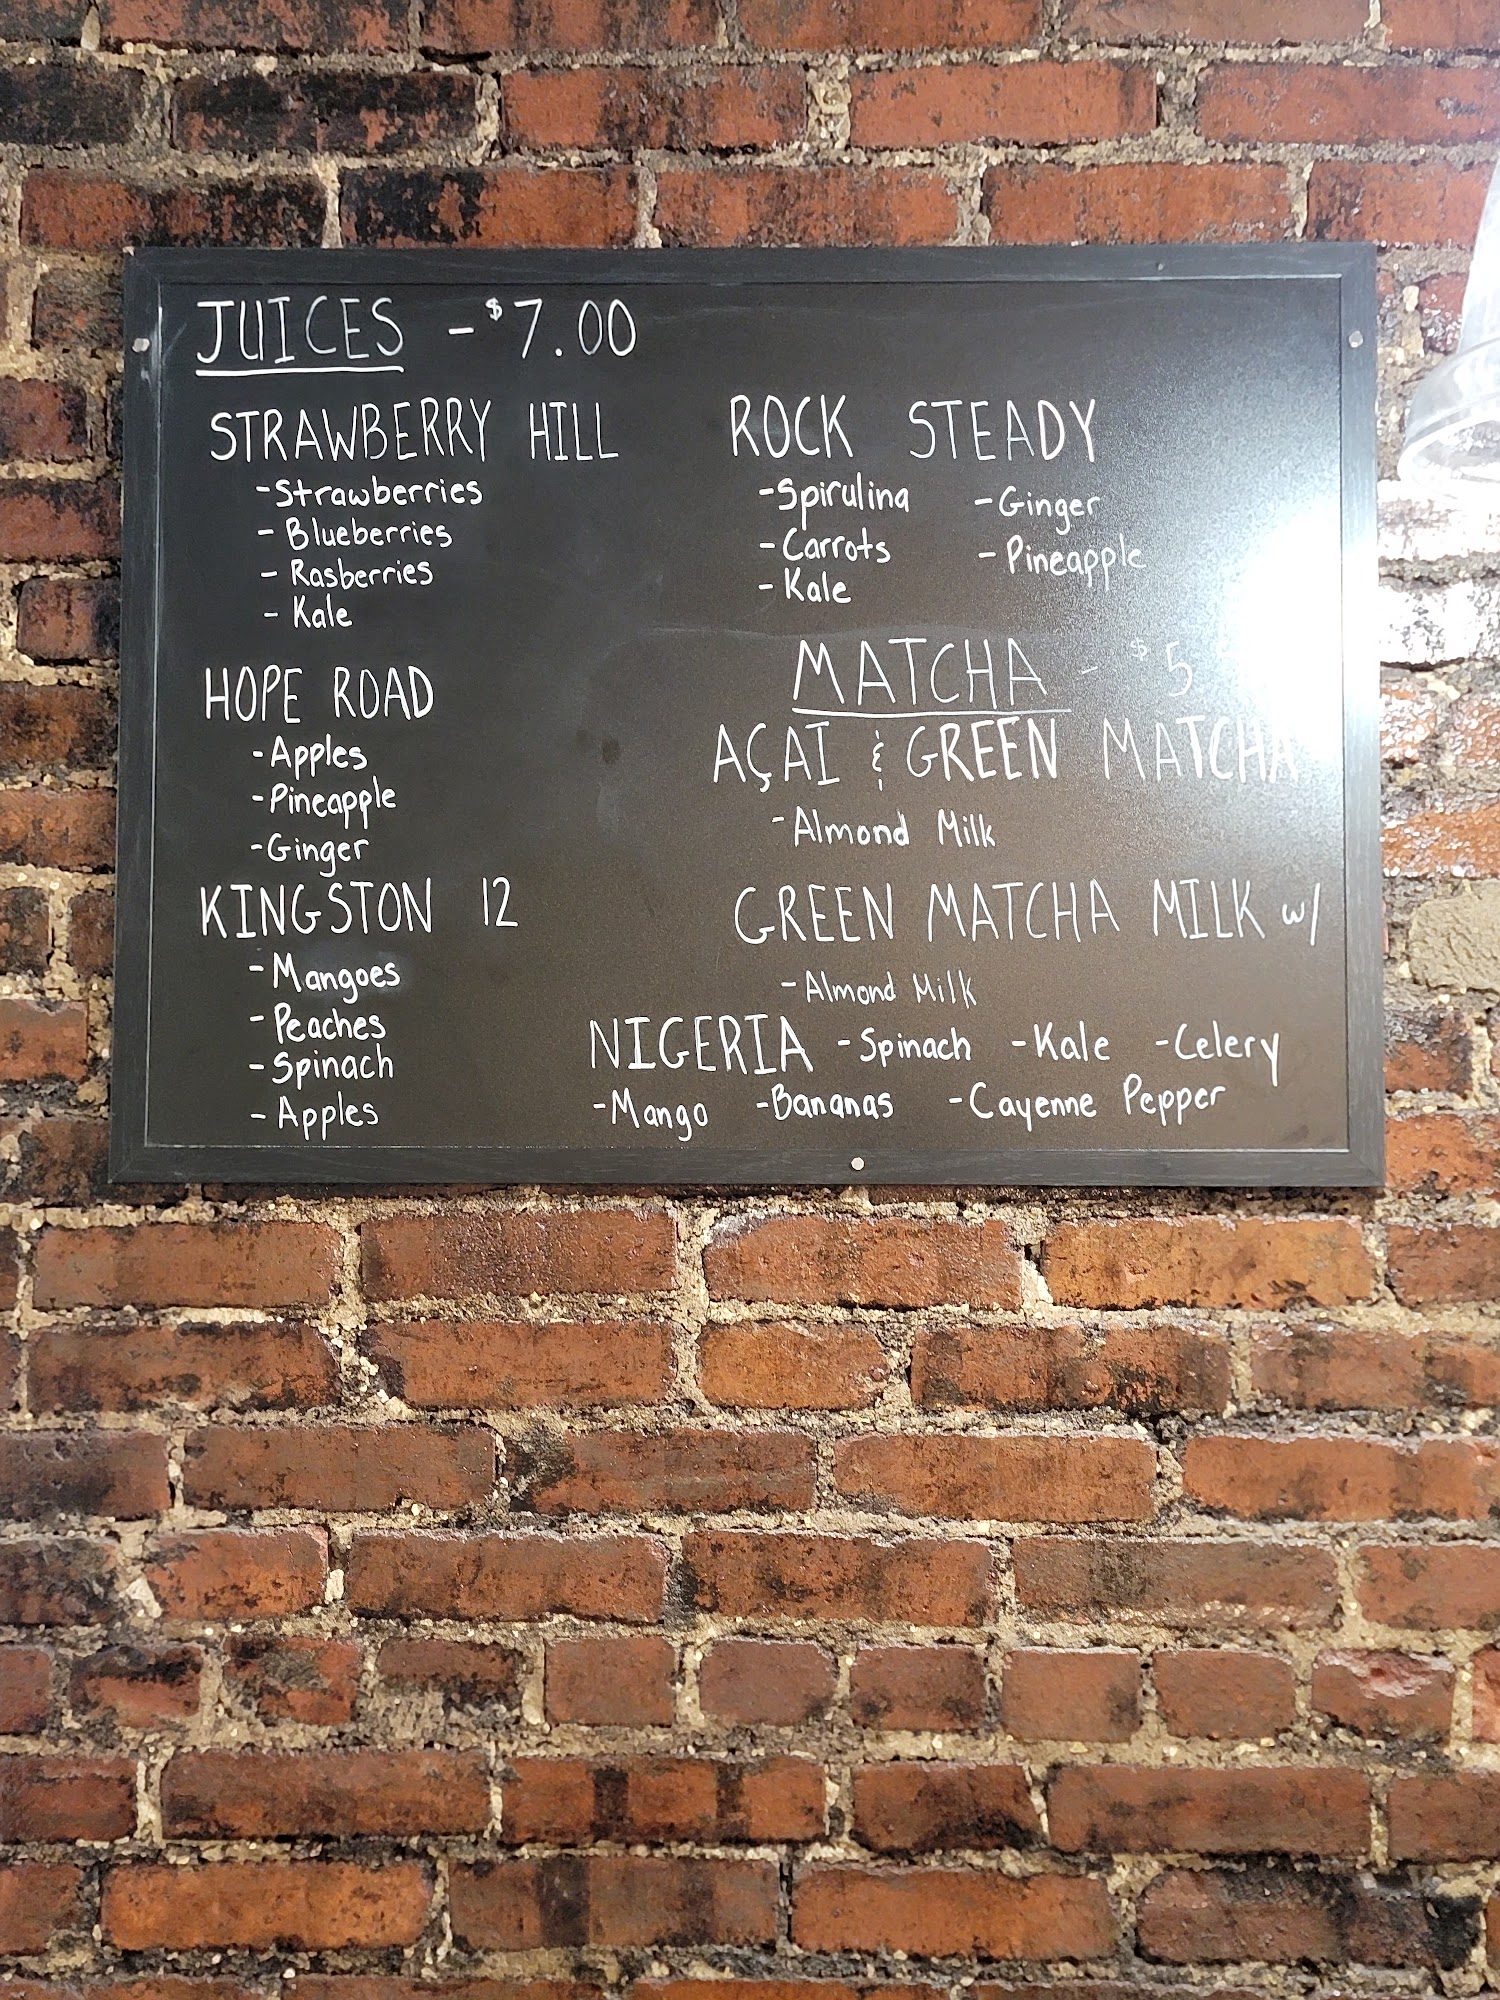 JUICES - $7.00
STRAWBERRY HILL
-Strawberries
- Blueberries
- Rasberries
- Kale
HOPE ROAD
-Apples
-Pineapple
-Ginger
KINGSTON 12
-Mangoes
-Peaches
-Spinach
-Apples
ROCK STEADY
-Spirulina -Ginger
-Carrots -Pineapple
-Kale
MATCHA - $5
AÇAI & GREEN MATCHA
-Almond Milk
GREEN MATCHA MILK w/
-Almond Milk
NIGERIA -Spinach -Kale -Celery
-Mango -Bananas -Cayenne Pepper